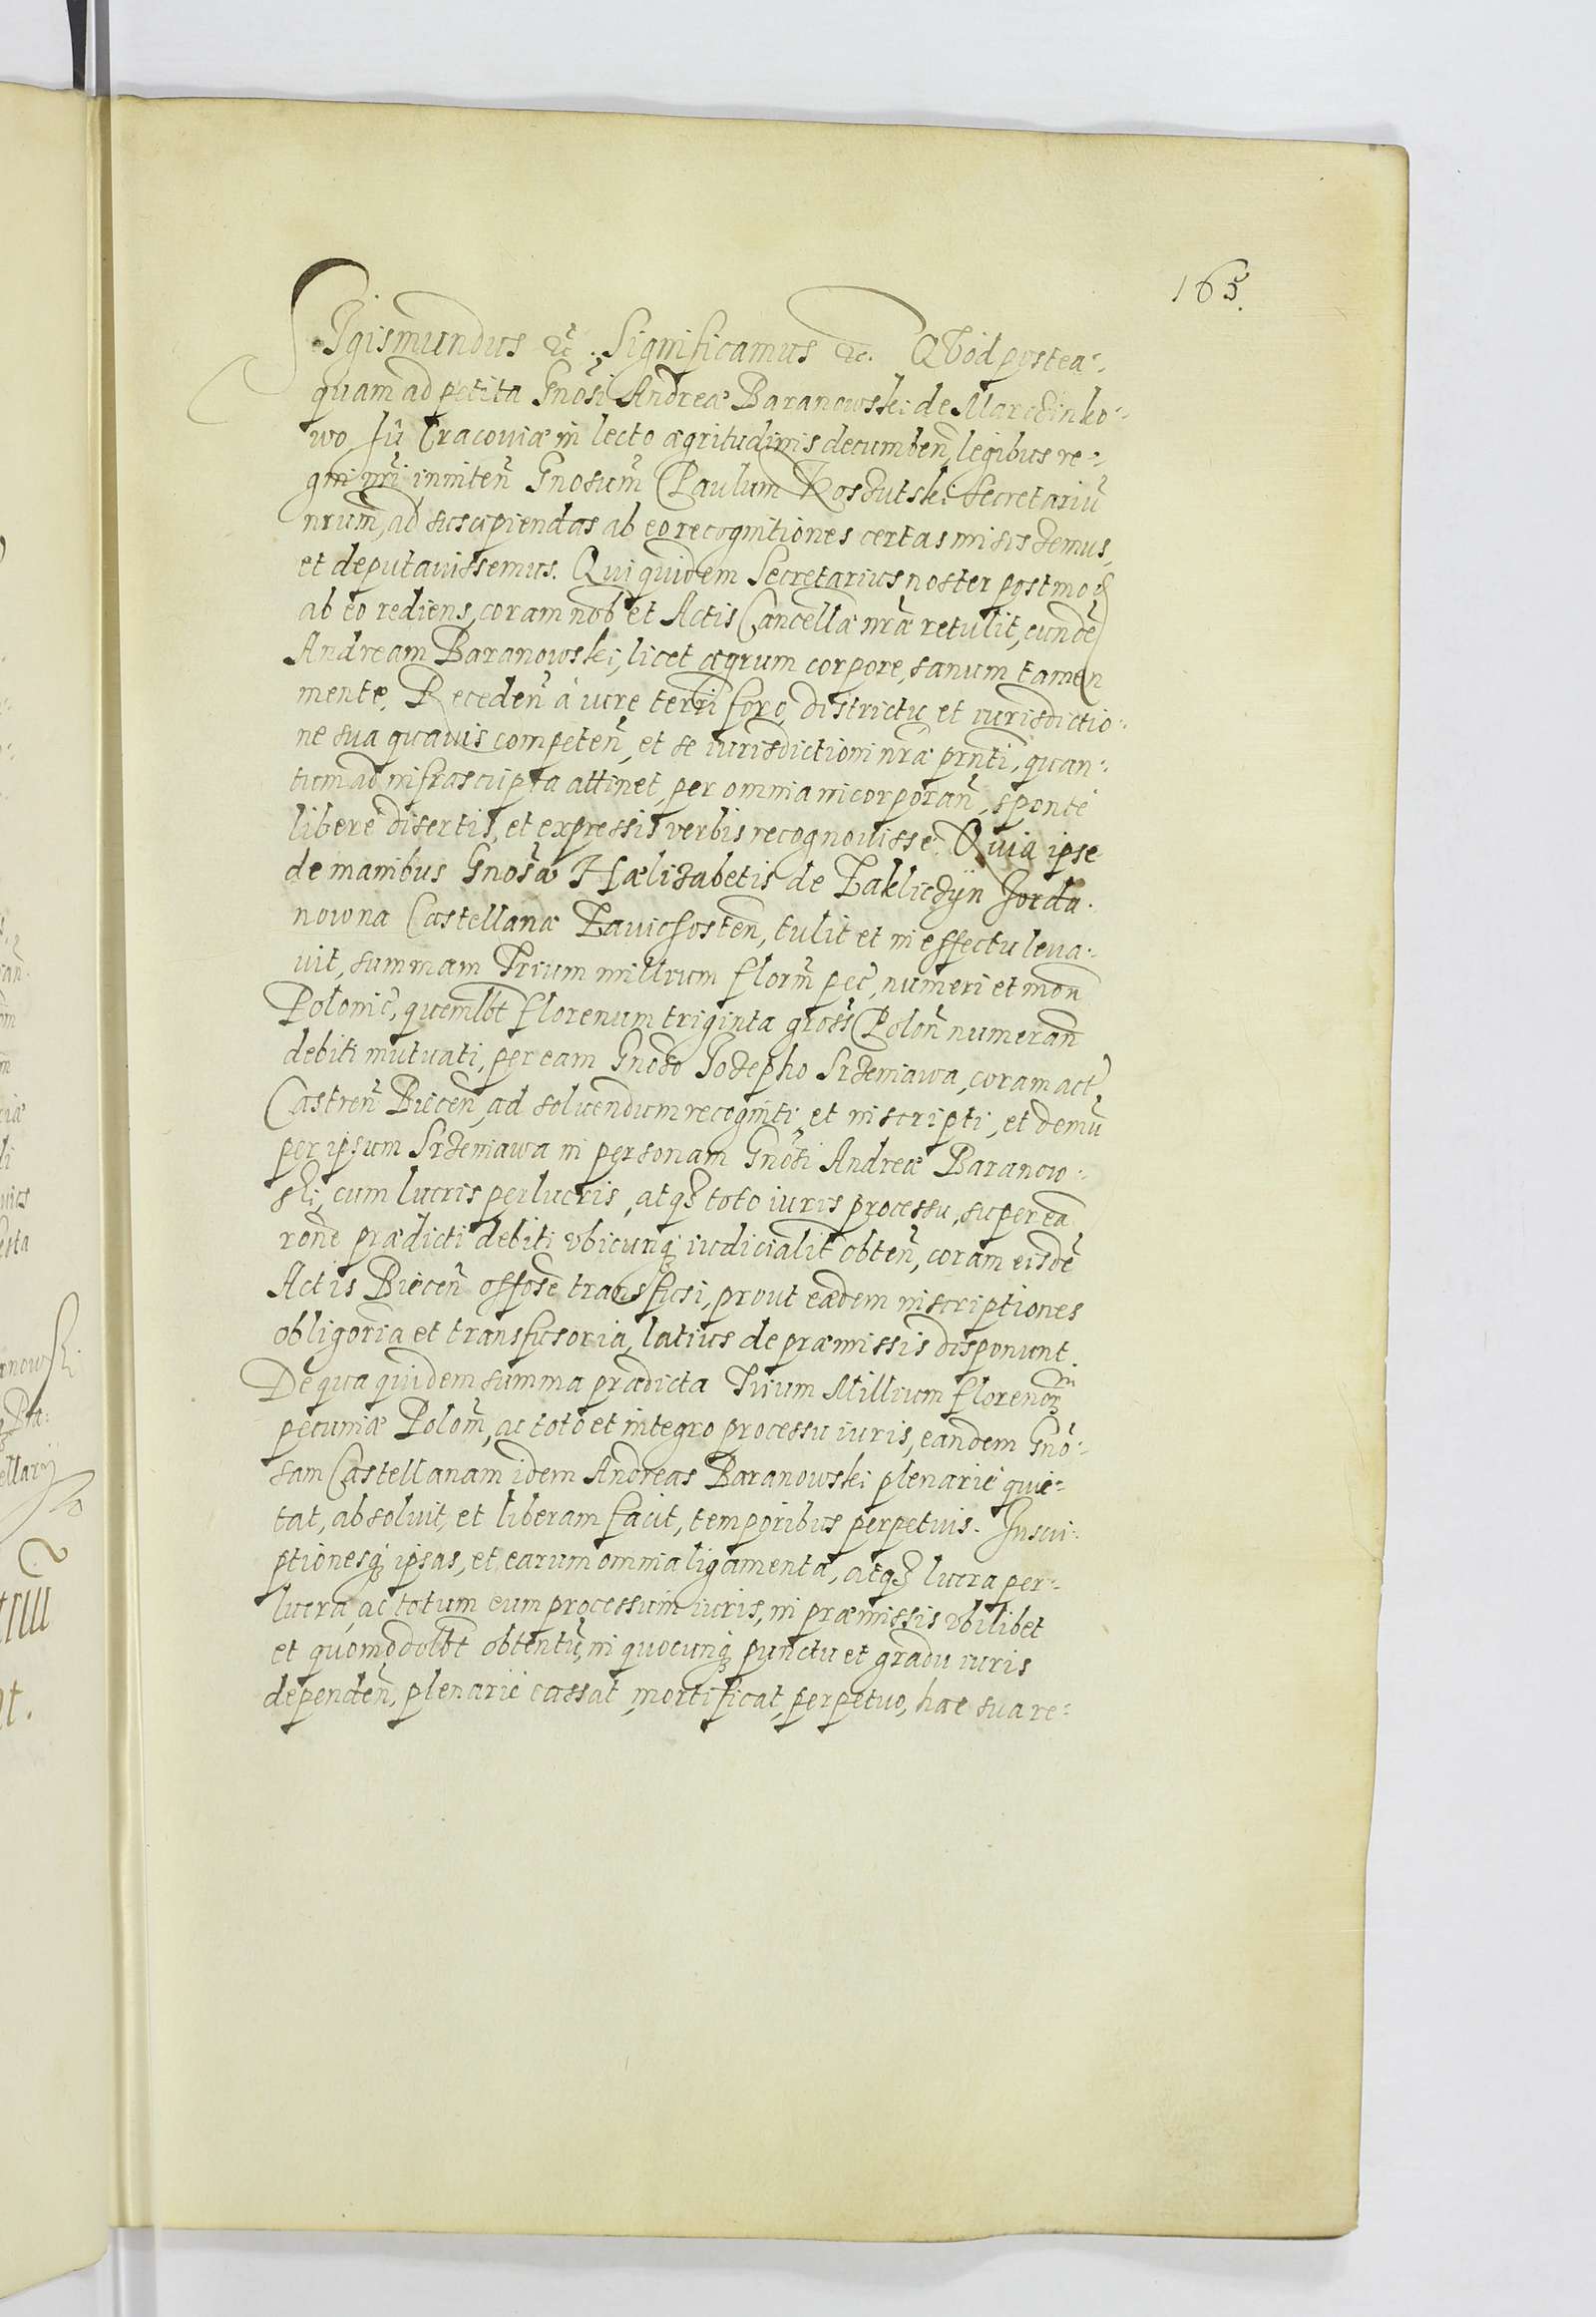 163.
Sigismundus etc̃. Significamus etc. Qvod postea-
quam ad petita Gnõsi Andreæ Baranowski de Marczinko-
wo hic Cracoviæ in lecto ægritudinis decumbeñ, legibus re-
gni nr̃i inniteñ Gnosum̃ Paulum Koszutski Secretariũ
nrum̃, ad suscipiendas ab eo recognitiones certas misissemus,
et deputavissemus. Qui quidem Secretarius noster postmod
ab eo rediens, coram nob et Actis Cancellæ nr̃æ retulit, eundẽ
Andream Baranowski, licet ægrum corpore, sanum tamen
mente, Recedeñ à iure terri foro, districtu et iurisdictio-
ne sua quavis competeñ, et se iurisdictioni nr̃æ prnt̃i, quan-
tum ad infrascripta attinet, per omnia incorporañ, sponte
liberè disertis, et expressis verbis recognovisse. Quia ipse
de manibus Gnosæ̃ Hælizabetis de Zakliczÿn Jorda-
nowna Castellanæ Zavichosteñ, tulit et in effectu leva-
vit, summam Trium millium florm̃ pec̃, numeri et moñ
Polonic̃, quemlbt florenum triginta gross Poloñ numerañ
debiti mutuati, per eam Gnoso Josepho Srzeniawa, coram act̃
Castreñ Bieceñ, ad solvendum recogniti, et inscripti, et demũ
per ipsum Srzeniawa in personam Gnõsi Andreæ Baranow-
ski, cum lucris perlucris, atq₃ toto iuris processu, super eã
rone prædicti debiti ubicunq₃ iudicialit̃ obteñ, coram eisdẽ
Actis Bieceñ offose transfusi, prout eædem inscriptiones
obligoria et transfusoria, latius de præmissis disponunt.
De qua quidem summa prædicta Trium Millium florenor̃
pecuniæ Poloñ, ac toto et integro processu iuris, eandem Gnõ-
sam Castellanam idem Andreas Baranowski plenariè quie-
tat, absolvit, et liberam facit, temporibus perpetuis. Inscri-
ptionesq₃ ipsas, et earum omnia ligamenta, atq₃ lucra per-
lucra, ac totum eum processum iuris, in præmissis ubilibet
et quomodolbt obtentũ, in quocunq₃ punctu et gradu iuris
dependeñ, plenariè cassat, mortificat, perpetuo, hac sua re-